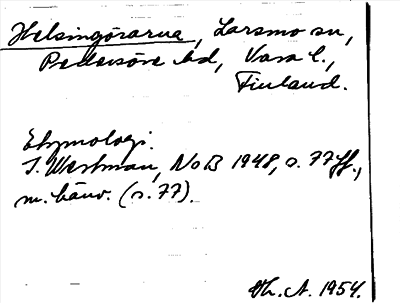 Helsingörarna, Larsmo sn,
Pedersöre hd, Vasa l.,
Finland.
Etymologi.
I. Westman, NoB 1948, s. 77 ff.,
m. hänv. (s. 77).
Th. A. 1954.